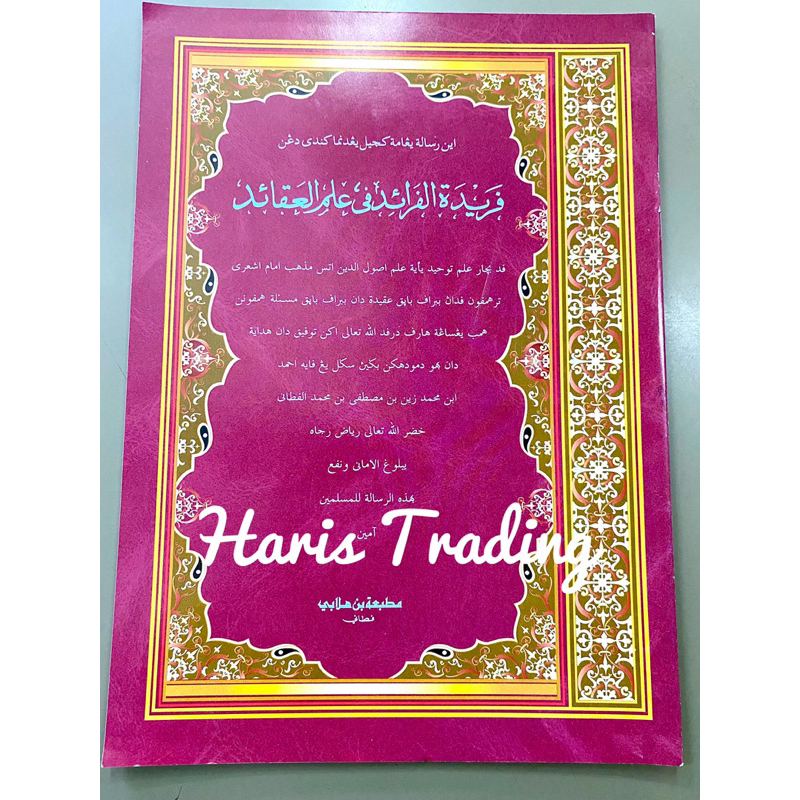 اين رسالة يڠامة كچيل يڠدنماكندى دڠن
فريدة الفرائد فى علم العقائد
قد بچار علم توحيد يأية علم اصول الدين اتس مذهب امام اشعرى
ترهمفون فدان ببراف بايق عقيدة دان ببراف بايق مسئلة همفونن
همب يڠساڠة هارف درفد الله تعالى اكن توفيق دان هداية
دان بهو دمودهكن بكين سكل يڠ فايه احمد
ابن محمد زين بن مصطفى بن محمد الفطانى
خضر الله تعالى رياض رجاه
يبلوغ الامانى ونفع
بهذه الرسالة للمسلمين
آمين
Haris Trading
مطبعة بن هلابي
فطاني